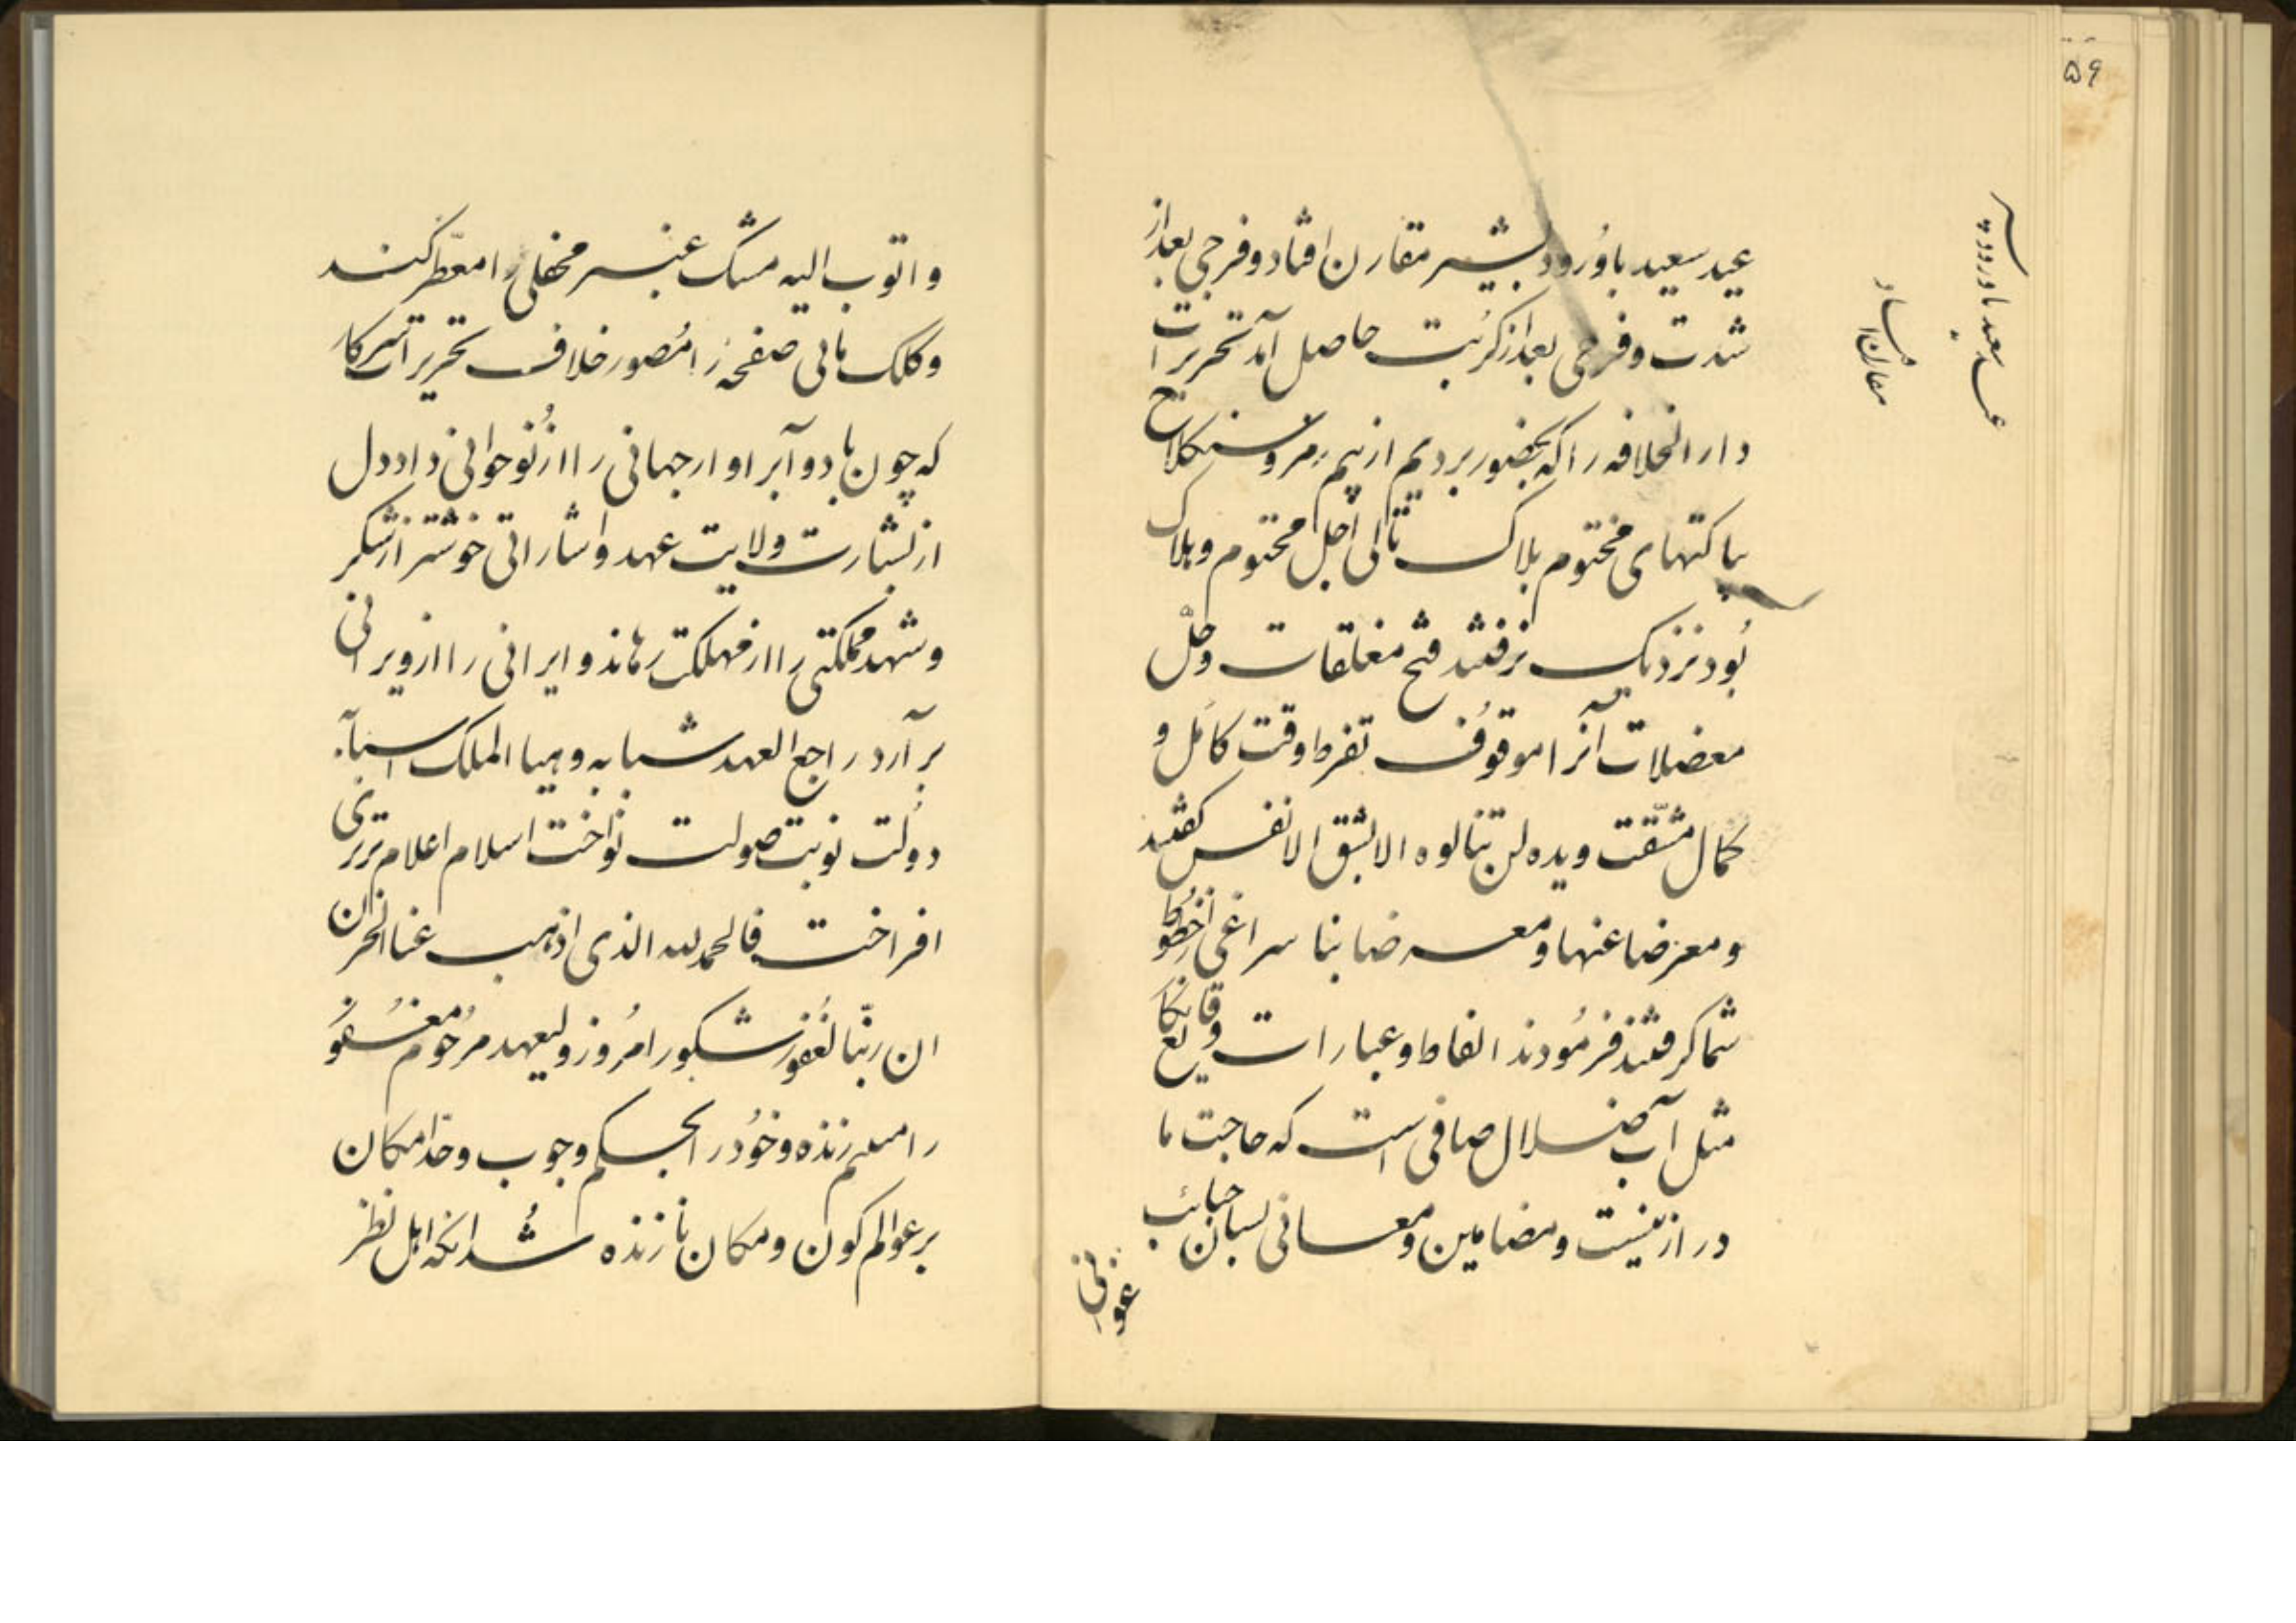 ۵۹
عید سعید باورود بشیر مقارن افتاد و فرجی بعد از
شدت و فرحی بعد از کربت حاصل آمد تحریرات
دارالخلافه را که بحضور بردیم از بیم رمز و
پاکتهای مختوم بلاک تا الی اجل محتوم و بلاک
بود نزدیک نرفتند فتح مغلقات و حل
معضلات آنرا موقوف تفرط وقت کامل و
کمال مشقت ویده لن تنالوه الا بشق الانفس گفتند
و معرضا عنها و معرضا بنا سراغی از خطوط
شما گرفتند فرمودند الفاظ و عبارات وقایع
مثل آب ضلال صافی است که حاجت ما
در از نیست و مضامین و معانی بسان حبائب
و اتوب الیه مشک عنبر محفلی را معطر کند
و کلک مانی صفحه را مصور خلاف تحریرات سرکار
که چون باد و آبر اوار جهانی را از نو جوانی داد دل
از بشارت ولایت عهد و اشاراتی خوشتر از شکر
و شهد مملکتی را از مهلکت رهاند و ایرانی را از ویرانی
بر آرد راجع العهد شبابه و هیا الملک اسبابه
دولت نوبت صولت نواخت اسلام اعلام برتری
افراخت فالحمدلله الذی اذهب عنا الحزن
ان ربنا لغفور شکور امروز ولیعهد مرحوم مغفور
را زنده و خود را بحکم وجوب و خدا مکان
بر عوالم کون و مکان نازنده شد آنکه اهل نظر
عید سعید باورود
مقارن افتاد